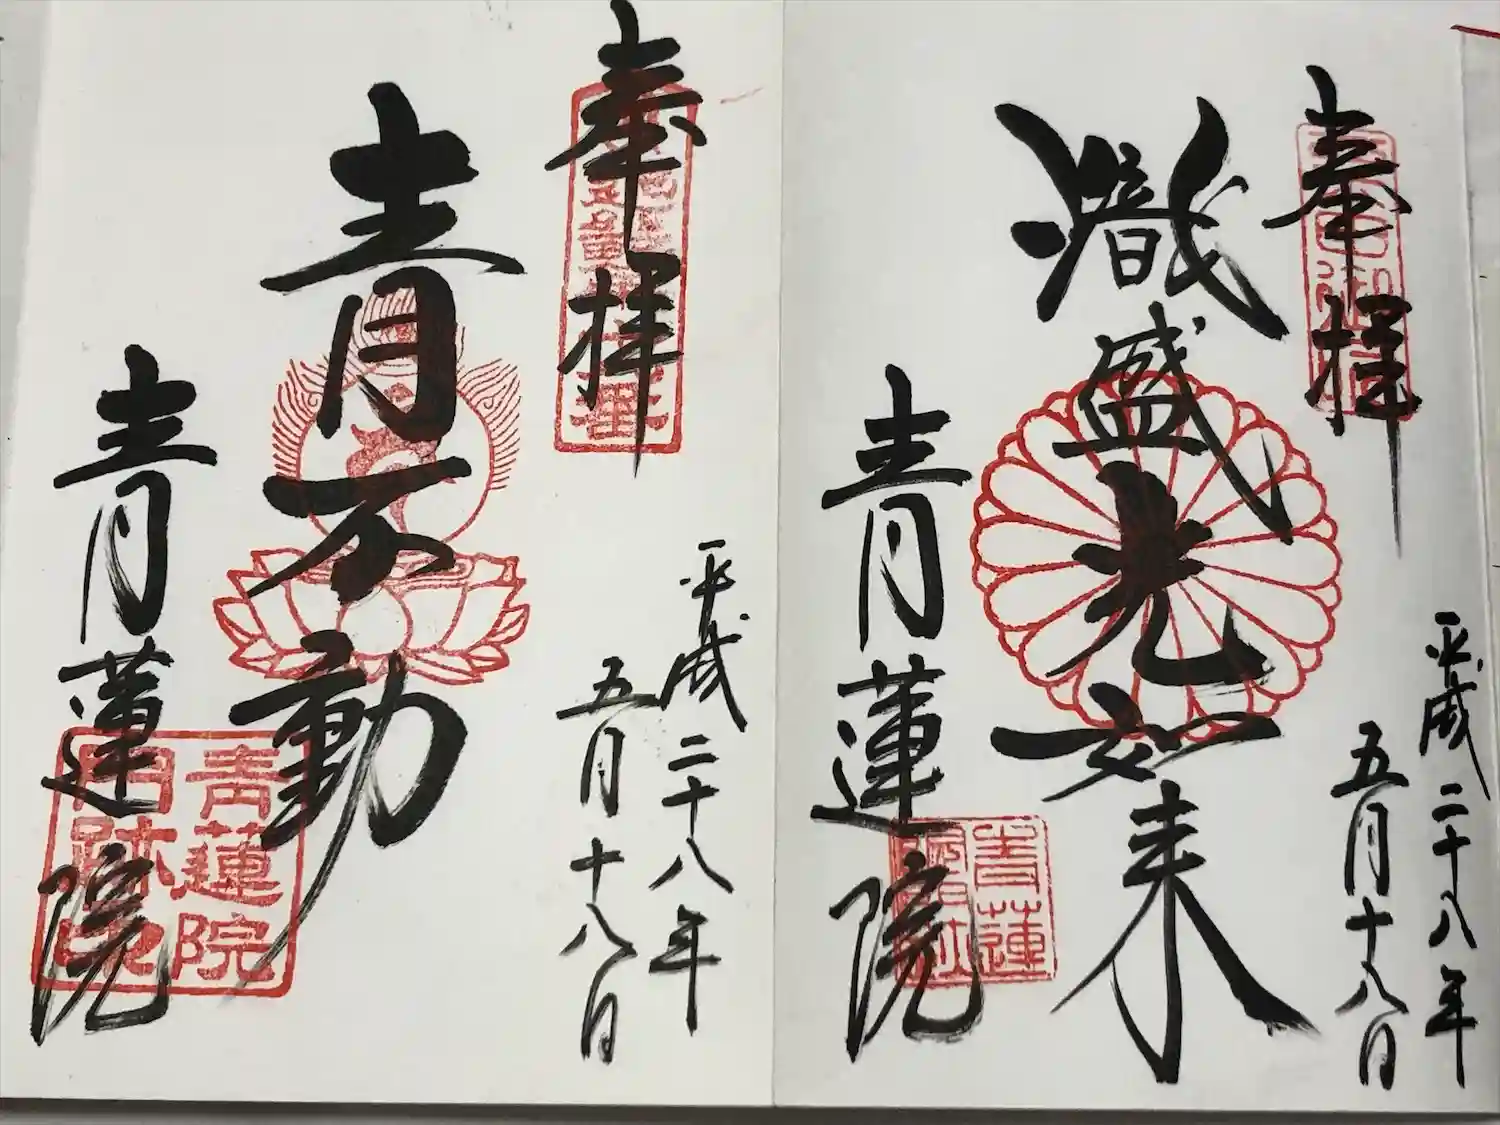 奉拝
平成二十八年
五月十八日
熾盛光如来
青蓮院
青蓮
奉拝
平成二十八年
五月十八日
青不動
青蓮院
青蓮院
門跡印